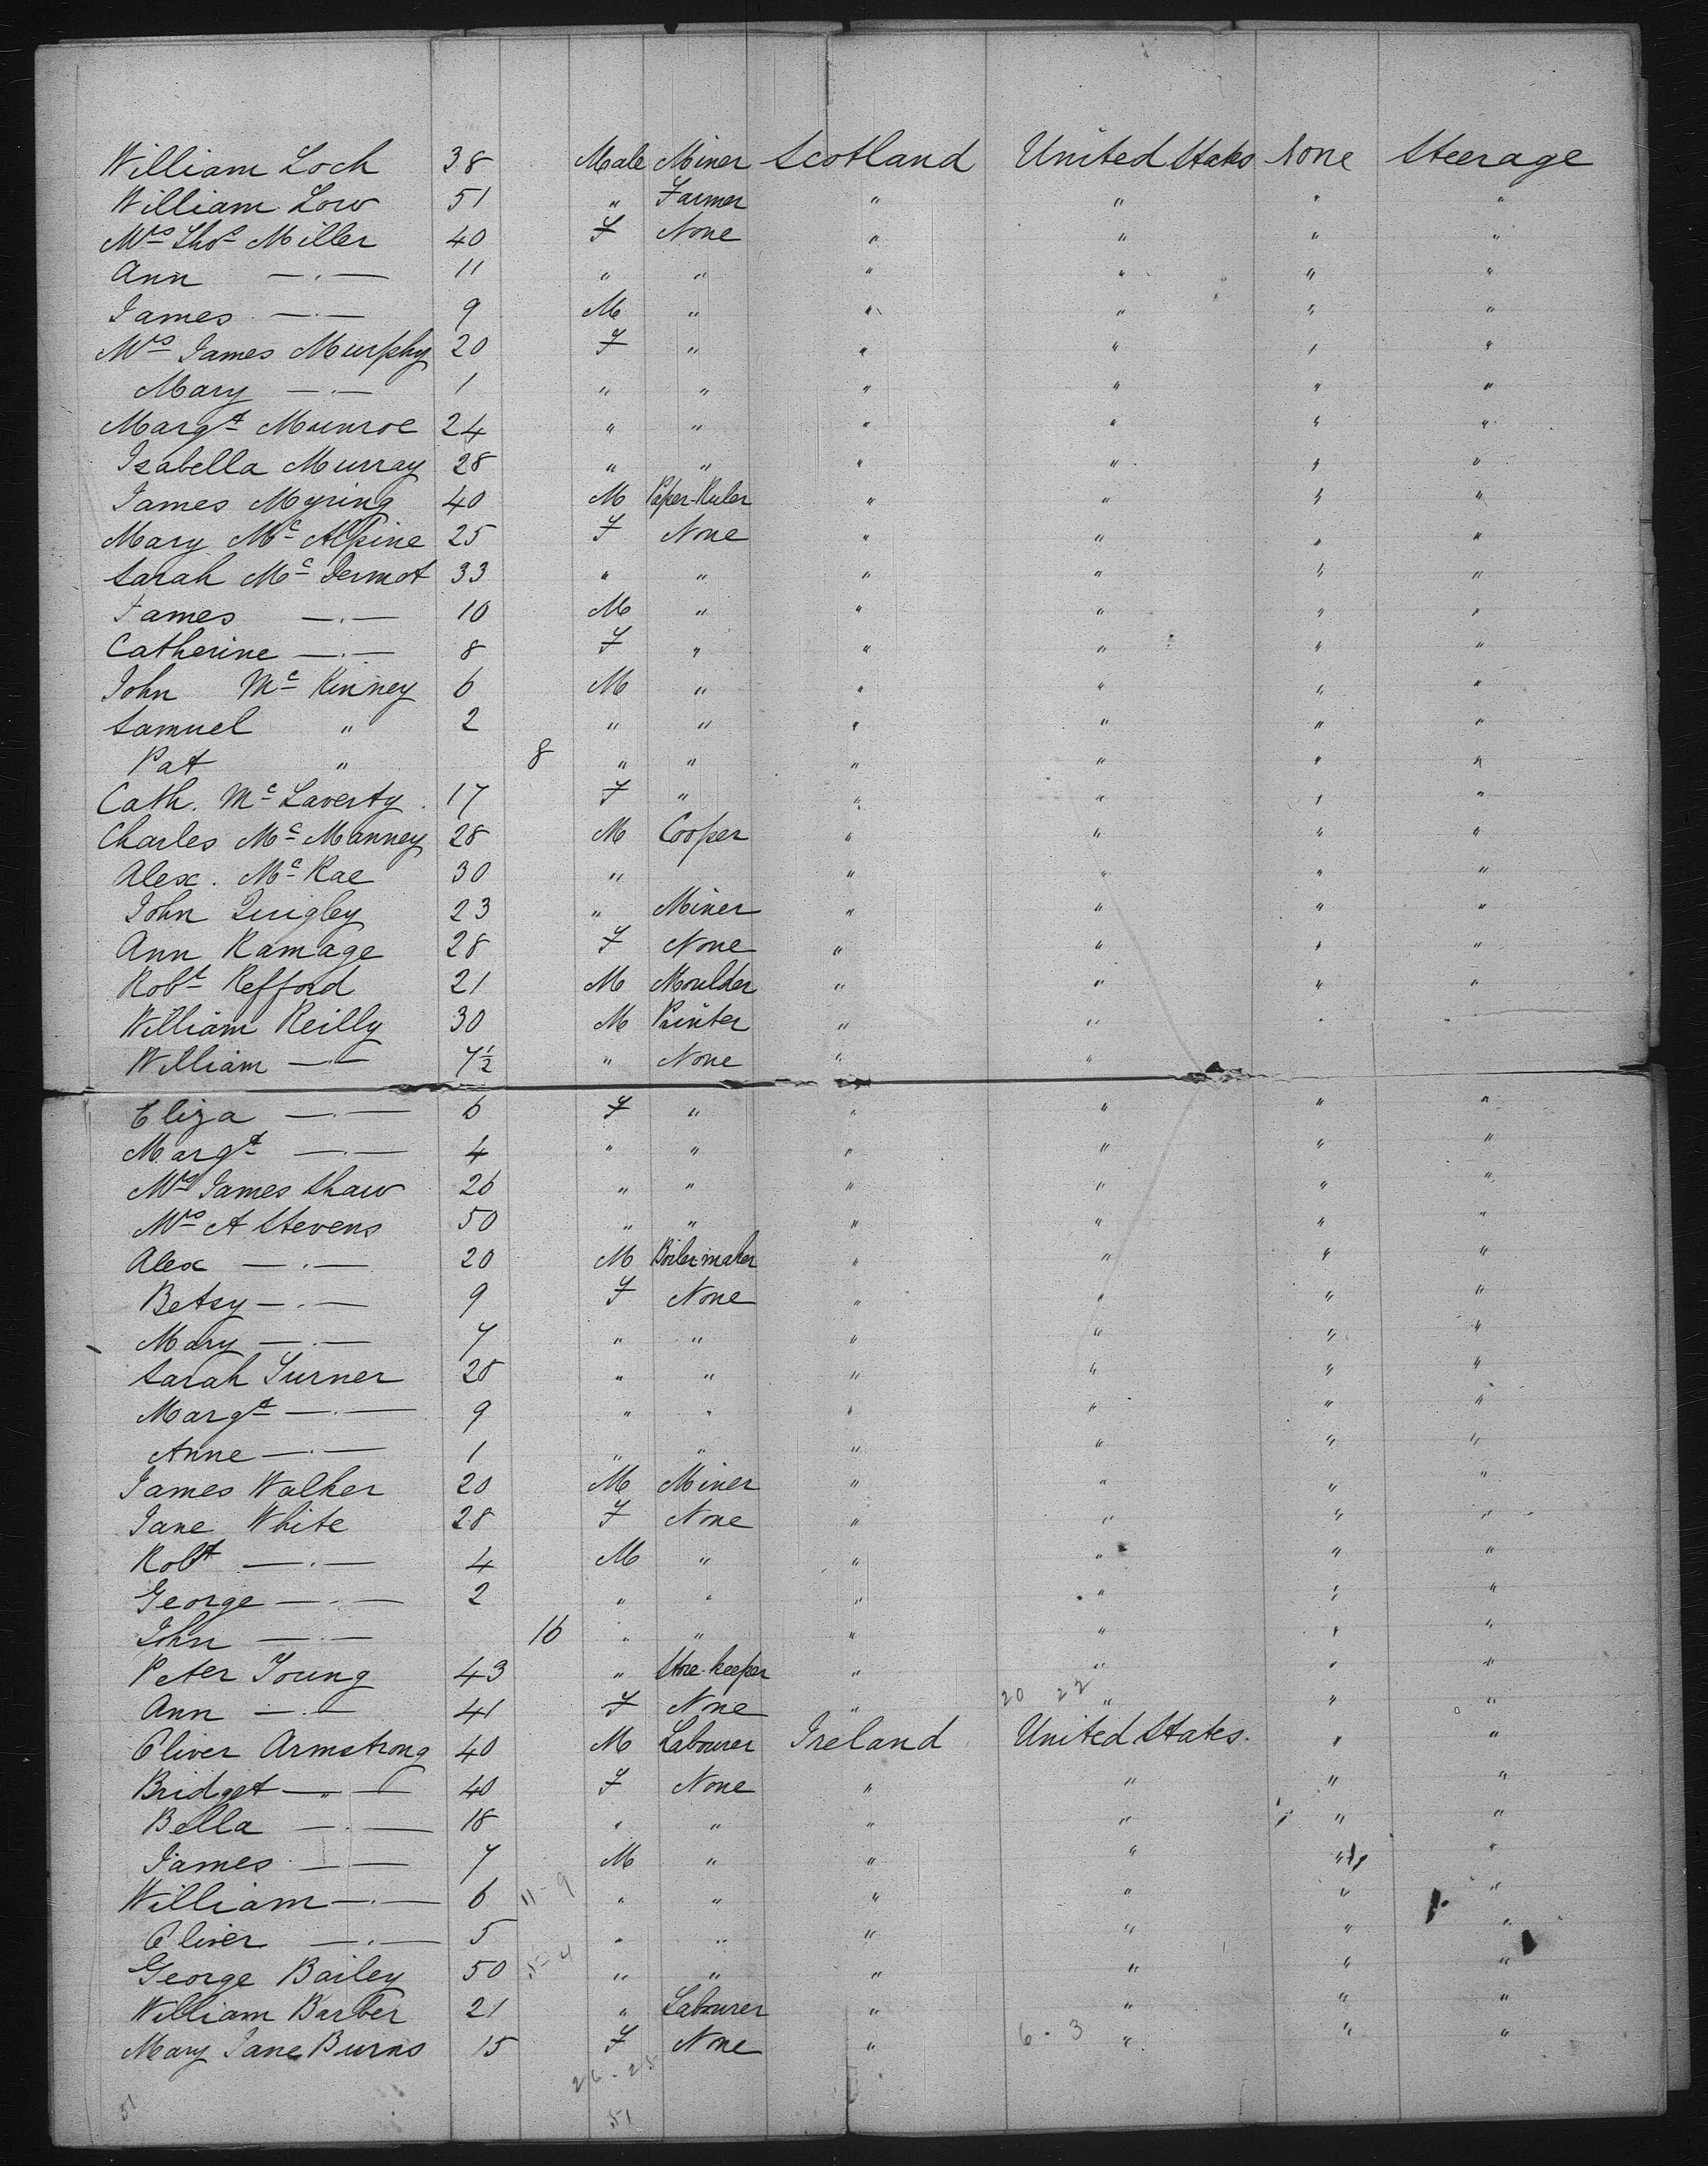 William Loch 38 Male Miner Scotland United States None Steerage
William Low 51 " Farmer " " " "
Mrs Thos Miller 40 F None " " " "
Ann —·— 11 " " " " " "
James —·— 9 M " " " " "
Mrs James Murphy 20 F " " " " "
Mary —·— 1 " " " " " "
Margt Munroe 24 " " " " " "
Isabella Murray 28 " " " " " "
James Myring 40 M Paper-Ruler " " " "
Mary Mc Alpine 25 F None " " " "
Sarah Mc Dermot 33 " " " " " "
James —·— 10 M " " " " "
Catherine —·— 8 F " " " " "
John Mc Kinney 6 M " " " " "
Samuel " 2 " " " " " "
Pat " 8 " " " " " "
Cath. Mc Laverty 17 F " " " " "
Charles Mc Manney 28 M Cooper " " " "
Alex. Mc Rae 30 " " " " "
John Quigley 23 " Miner " " " "
Ann Ramage 28 F None " " " "
Robt Refford 21 M Moulder " " " "
William Reilly 30 M Painter " " " "
William —·— 7½ " None " "
Eliza —·— 6 F " " " " "
Margt —·— 4 " " " " " "
Mrs James Shaw 26 " " " " " "
Mrs A Stevens 50 " " " " " "
Alex —·— 20 M Boiler maker " " " "
Betsy —·— 9 F None " " " "
Mary —·— 7 " " " " " "
Sarah Turner 28 " " " " " "
Margt —·— 9 " " " " " "
Anne —·— 1 " " " " " "
James Walker 20 M Miner " " " "
Jane White 28 F None " " " "
Robt —·— 4 M " " " " "
George —·— 2 " " " " " "
John —·— 16 " " " " " "
Peter Young 43 " Store-keeper " " " "
Ann —·— 41 F None " 20 22 " " "
Oliver Armstrong 40 M Labourer Ireland United States. " "
Bridget —"— 40 F None " " " "
Bella —·— 18 " " " " " "
James —·— 7 M " " " " "
William —·— 6 11-9 " " " " " "
Oliver —·— 5 " " " " " "
George Bailey 50 5-4 " " " " " "
William Barber 21 " Labourer " " " "
Mary Jane Burns 15 F None " 6-3 " " "
26-25
51 51